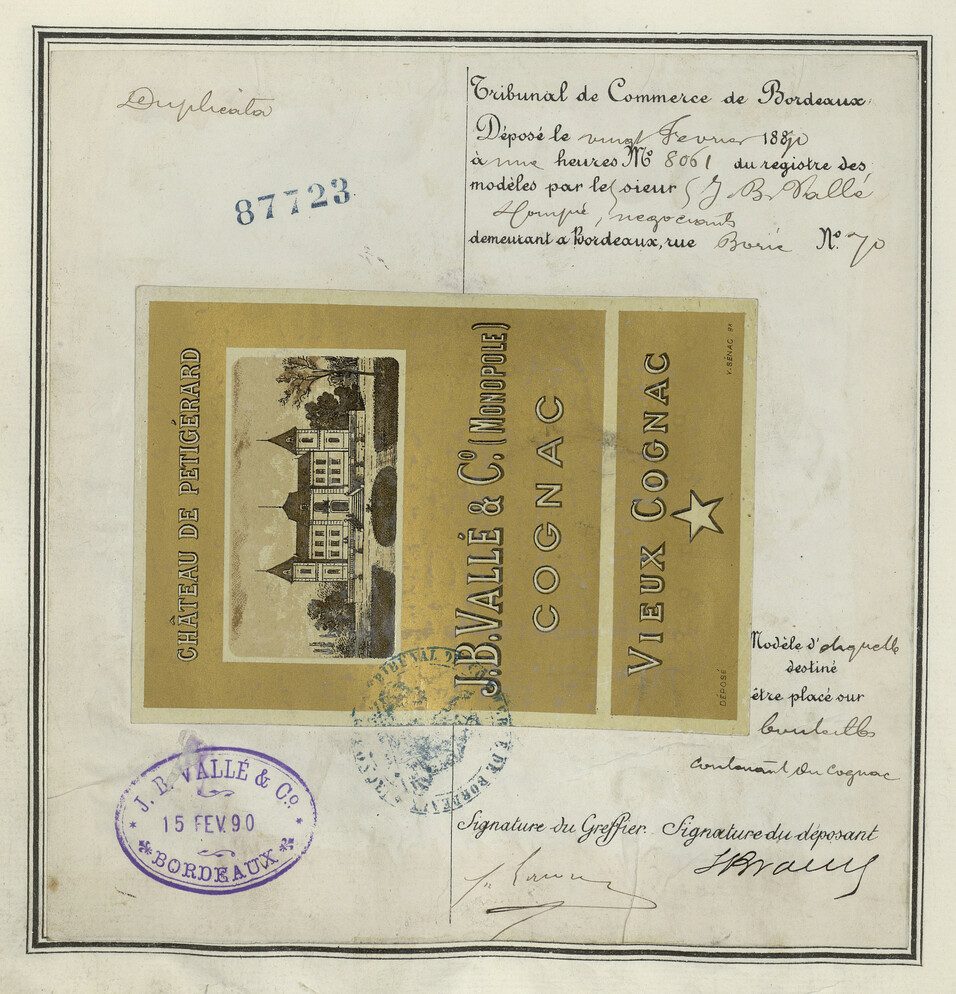 Duplicata
87723
Tribunal de Commerce de Bordeaux
Déposé le vingt Fevrier 1890
à une heures N° 8061 du registre des
modèles par le sieur J. B. Vallé
Compie, negociants
demeurant a Bordeaux, rue Borie N° 70
CHÂTEAU DE PETIGÉRARD
J.B. VALLÉ & Co. (MONOPOLE)
COGNAC
VIEUX COGNAC
DÉPOSÉ
V. BÉNAC BX
Modèle d'etiquette
destiné
être placé sur
bouteilles
contenant du cognac
TRIBUNAL DE COMMERCE DE BORDEAUX
J. B. VALLÉ & Co.
15 FEV. 90
BORDEAUX
Signature du Greffier. Signature du déposant